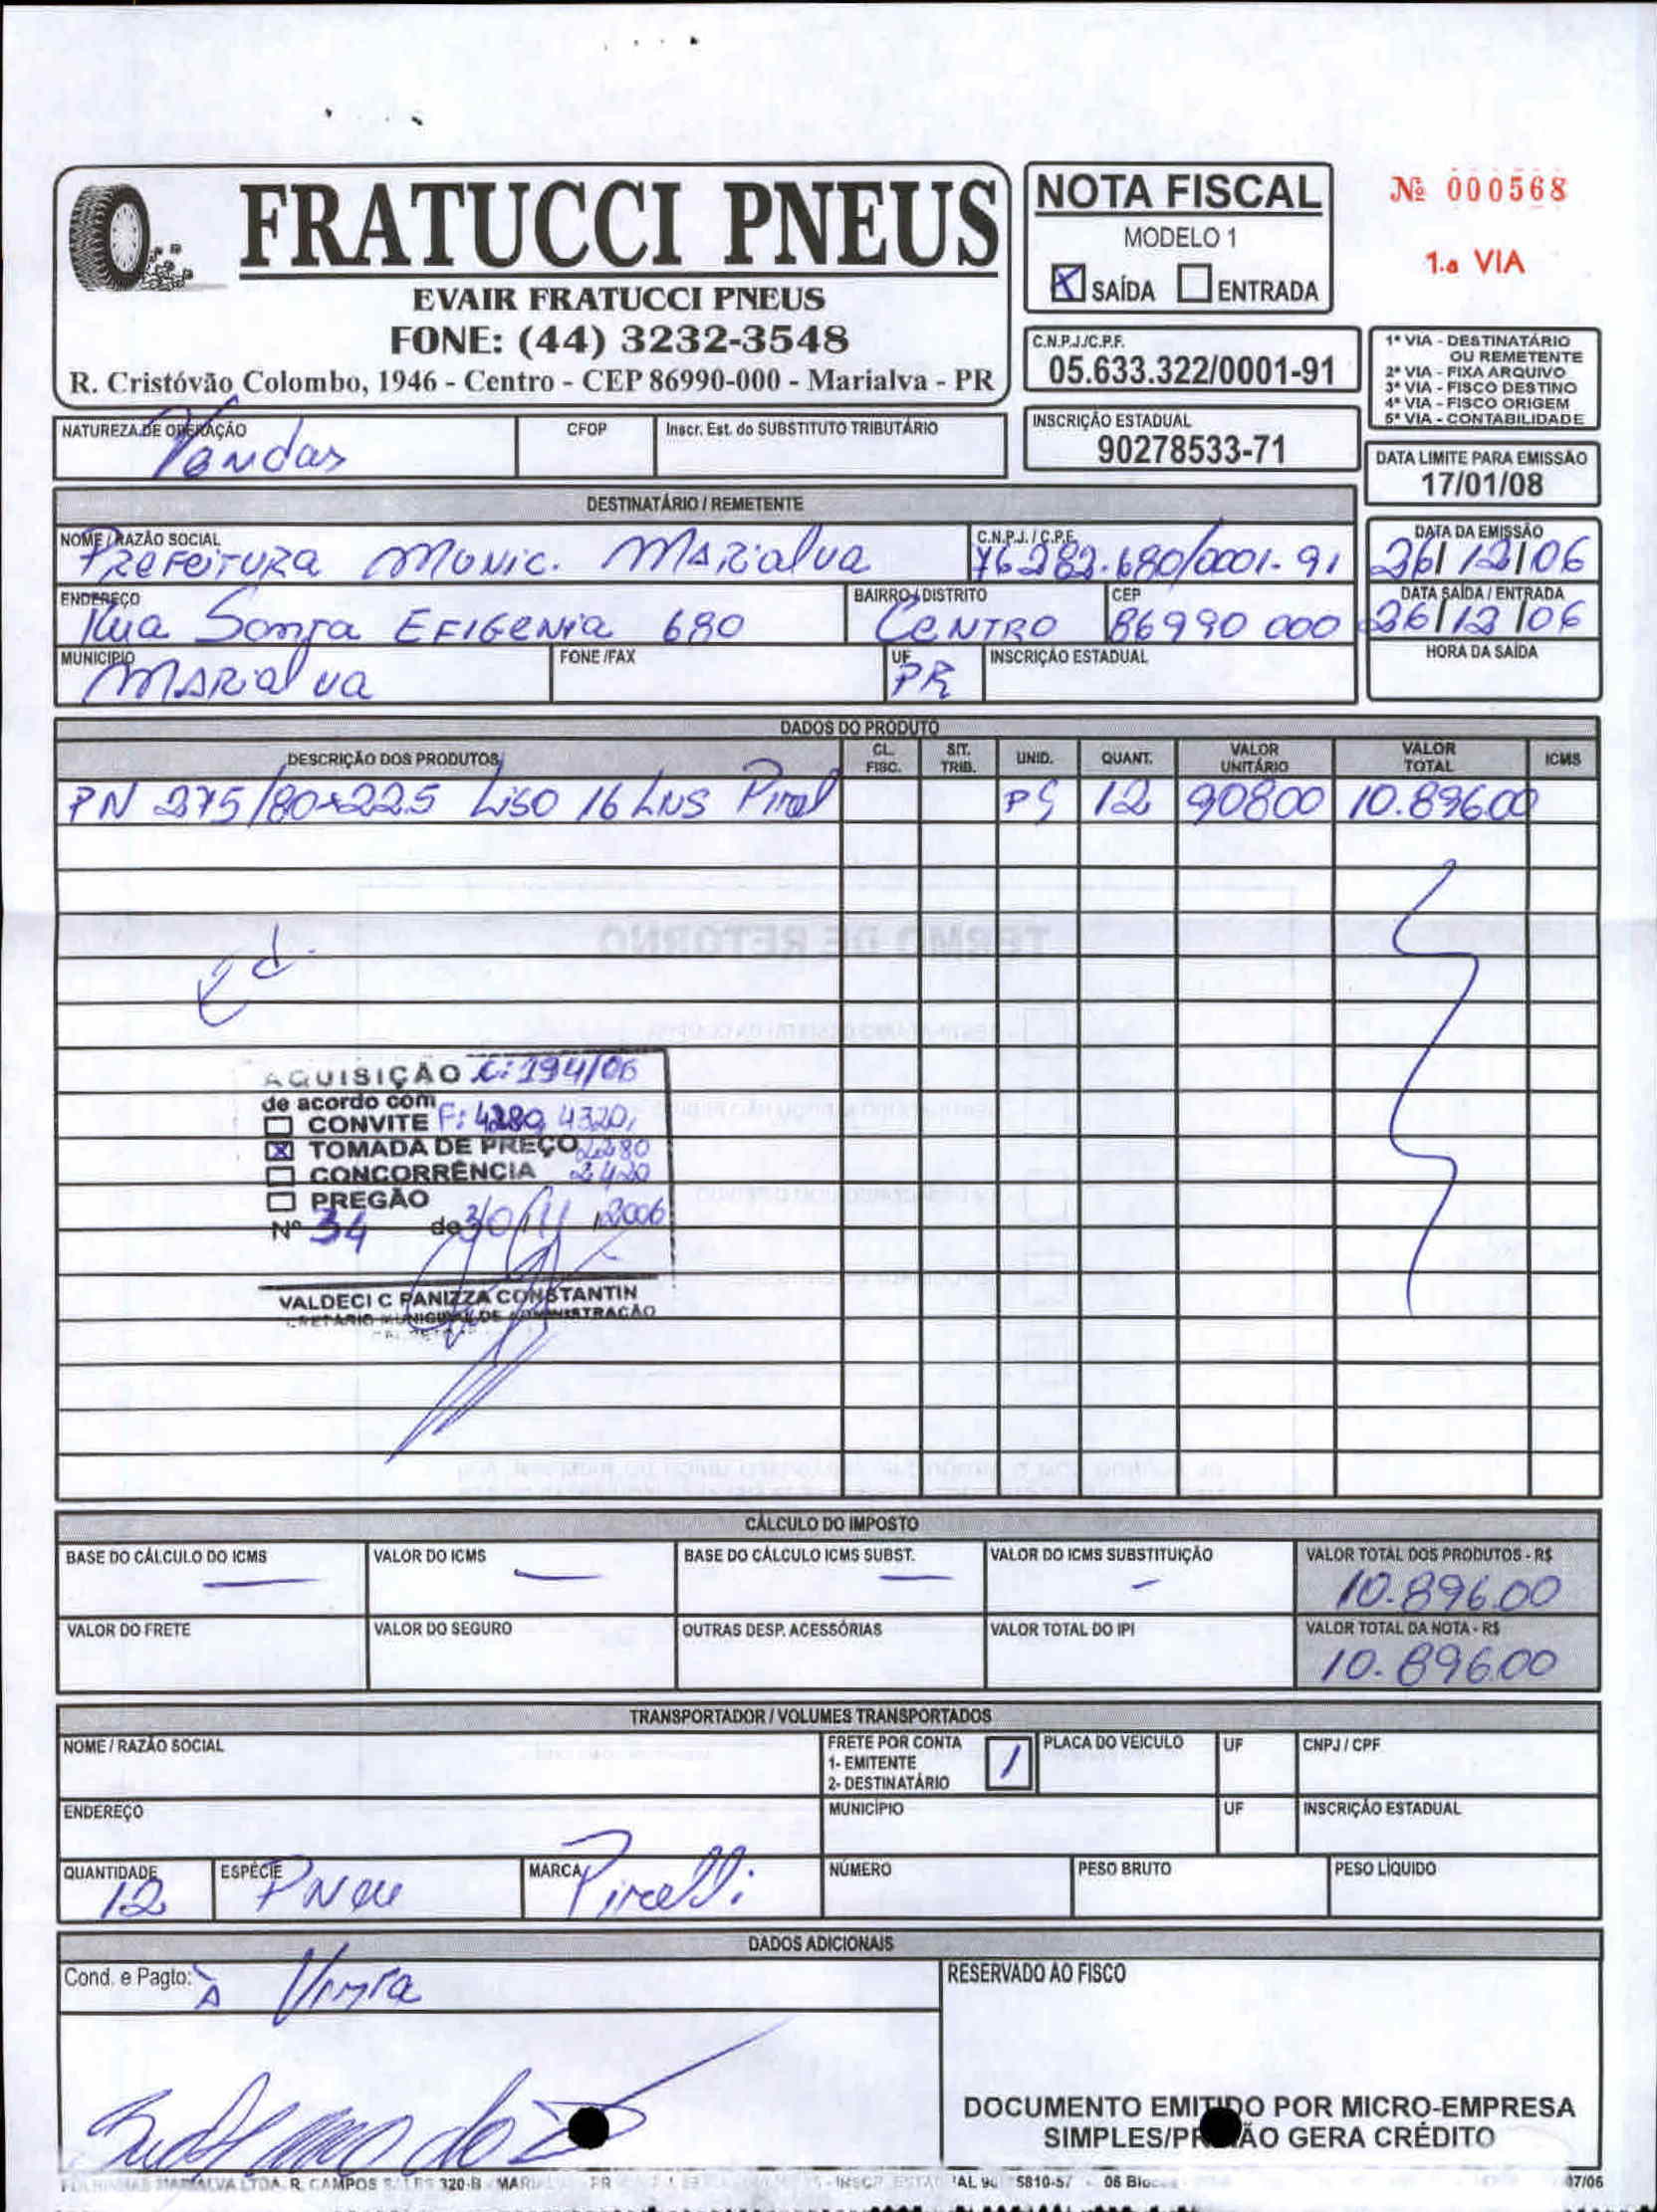 FRATUCCI PNEUS
EVAIR FRATUCCI PNEUS
FONE: (44) 3232-3548
R. Cristóvão Colombo, 1946 - Centro - CEP 86990-000 - Marialva - PR
NOTA FISCAL
MODELO 1
X SAÍDA ENTRADA
Nº 000568
1.a VIA
C.N.P.J./C.P.F.
05.633.322/0001-91
1ª VIA - DESTINATÁRIO
OU REMETENTE
2ª VIA - FIXA ARQUIVO
3ª VIA - FISCO DESTINO
4ª VIA - FISCO ORIGEM
5ª VIA - CONTABILIDADE
NATUREZA DE OPERAÇÃO CFOP Inscr. Est. do SUBSTITUTO TRIBUTÁRIO
Vendas
INSCRIÇÃO ESTADUAL
90278533-71
DATA LIMITE PARA EMISSÃO
17/01/08
DESTINATÁRIO / REMETENTE
NOME / RAZÃO SOCIAL C.N.P.J. / C.P.F. DATA DA EMISSÃO
Prefeitura Munic. Marialva 76.282.680/0001-91 26/12/06
ENDEREÇO BAIRRO / DISTRITO CEP DATA SAÍDA / ENTRADA
Rua Santa Efigenia 680 Centro 86990 000 26/12/06
MUNICIPIO FONE /FAX UF INSCRIÇÃO ESTADUAL HORA DA SAÍDA
Marialva PR
DADOS DO PRODUTO
DESCRIÇÃO DOS PRODUTOS CL. FISC. SIT. TRIB. UNID. QUANT. VALOR UNITÁRIO VALOR TOTAL ICMS
PN 275/80x225 Liso 16 Lns Pirel PÇ 12 90800 10.896.00
AQUISIÇÃO C: 194/06
de acordo com
CONVITE F: 4280, 4320,
X TOMADA DE PREÇO 2280
CONCORRÊNCIA 2420
PREGÃO
Nº 34 de 30/11/2006
VALDECI C PANIZZA CONSTANTIN
CRETARIO MUNICIPAL DE ADMINISTRAÇÃO
CÁLCULO DO IMPOSTO
BASE DO CÁLCULO DO ICMS VALOR DO ICMS BASE DO CÁLCULO ICMS SUBST. VALOR DO ICMS SUBSTITUIÇÃO VALOR TOTAL DOS PRODUTOS - R$
10.896.00
VALOR DO FRETE VALOR DO SEGURO OUTRAS DESP. ACESSÓRIAS VALOR TOTAL DO IPI VALOR TOTAL DA NOTA - R$
10.896.00
TRANSPORTADOR / VOLUMES TRANSPORTADOS
NOME / RAZÃO SOCIAL FRETE POR CONTA PLACA DO VEÍCULO UF CNPJ / CPF
1- EMITENTE 1
2- DESTINATÁRIO
ENDEREÇO MUNICÍPIO UF INSCRIÇÃO ESTADUAL
QUANTIDADE ESPÉCIE MARCA NÚMERO PESO BRUTO PESO LÍQUIDO
12 Pneu Pirelli
DADOS ADICIONAIS
Cond. e Pagto: À Vista
RESERVADO AO FISCO
DOCUMENTO EMITIDO POR MICRO-EMPRESA
SIMPLES/PR ÃO GERA CRÉDITO
MARIALVA LTDA. R. CAMPOS SALES 320-B 5810-57 06 07/06